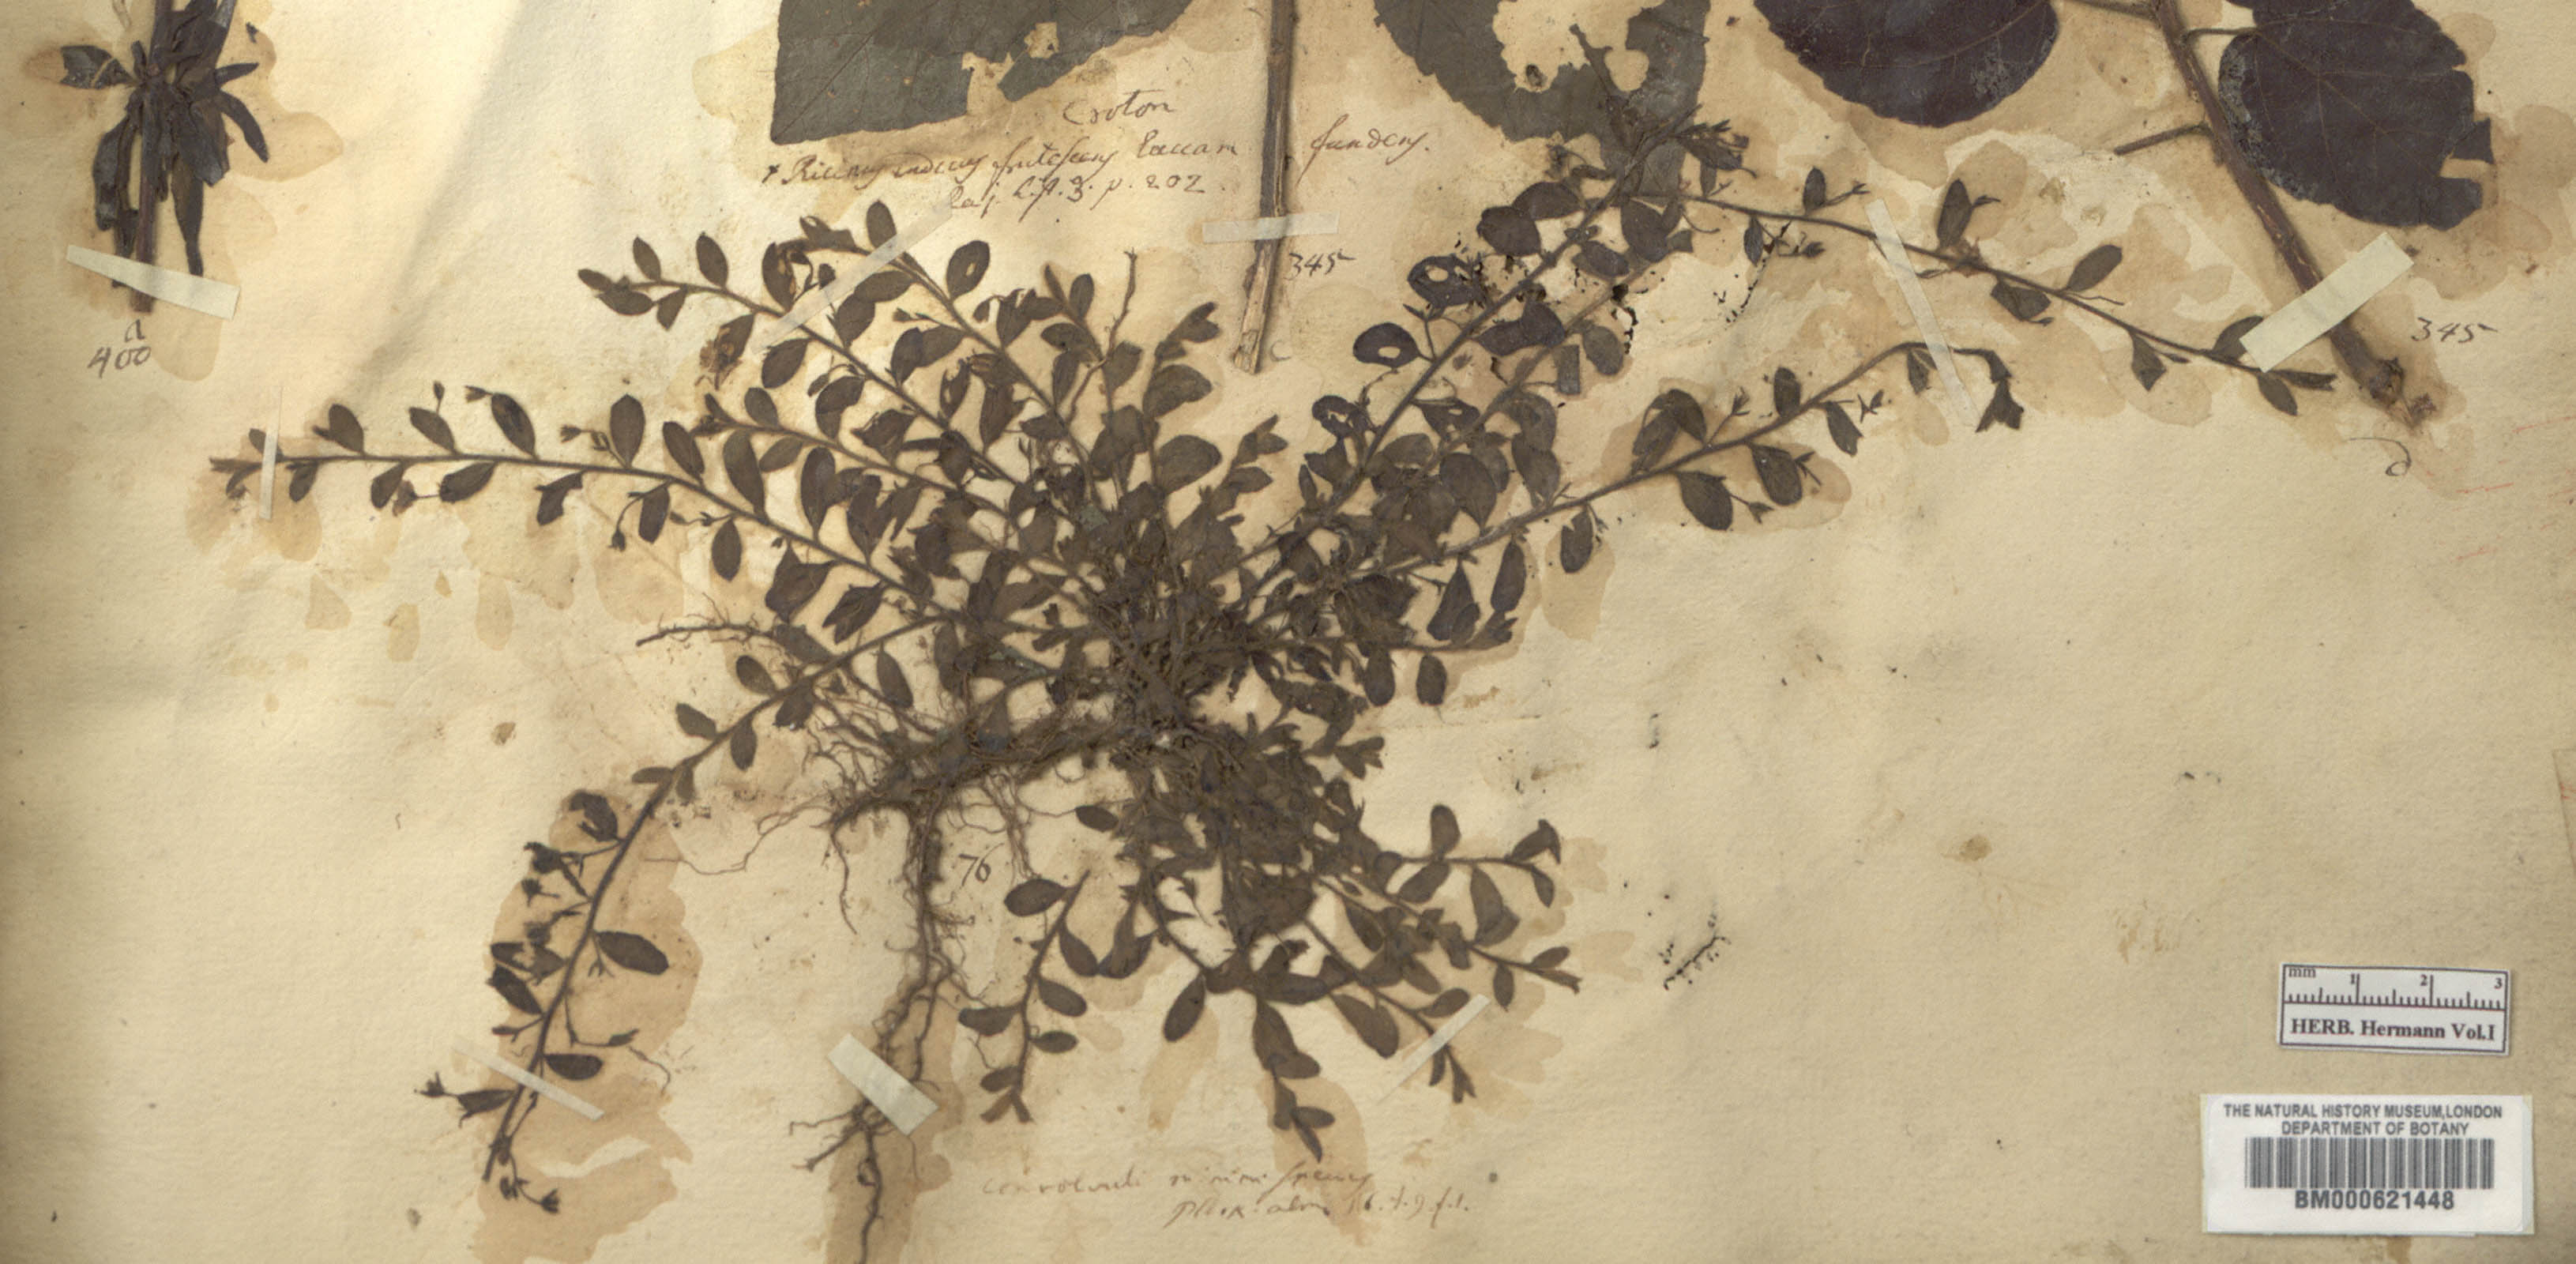 Croton
Ricinus indicus frutescens Laccam fundens.
Raj. h. p. 202
345
345
a
400
76
Convolvuli minimi species
pluk. alm. 116. t. 9. f. 1.
mm 1 2 3
HERB. Hermann Vol.I
THE NATURAL HISTORY MUSEUM,LONDON
DEPARTMENT OF BOTANY
BM000621448